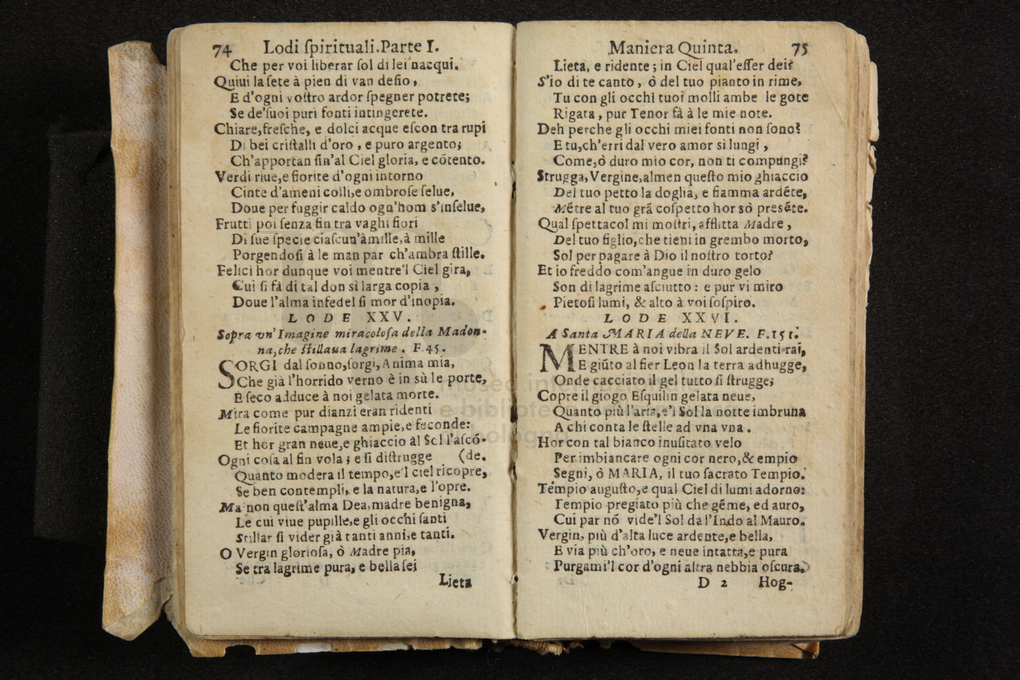 74 Lodi ſpirituali.Parte I.
Che per voi liberar ſol di lei nacqui.
Quiui la ſete à pien di van deſio,
E d'ogni voſtro ardor ſpegner potrete;
Se de'ſuoi puri fonti intingerete.
Chiare,freſche, e dolci acque eſcon tra rupi
Di bei criſtalli d'oro, e puro argento;
Ch'apportan ſin'al Ciel gloria, e cõtento.
Verdi riue,e fiorite d'ogni intorno
Cinte d'ameni colli,e ombroſe ſelue,
Doue per fuggir caldo ogn'hom s'inſelue,
Frutti poi ſenza fin tra vaghi fiori
Di ſue ſpecie ciaſcun'à mille,à mille
Porgendoſi à le man par ch'ambra ſtille.
Felici hor dunque voi mentre'l Ciel gira,
Cui ſi fà di tal don sì larga copia,
Doue l'alma infedel ſi mor d'inopia.
LODE XXV.
Sopra vn'Imagine miracoloſa della Madon-
na,che ſtillaua lagrime. F.45.
SORGI dal ſonno,ſorgi,Anima mia,
Che già l'horrido verno è in sù le porte,
E ſeco adduce à noi gelata morte.
Mira come pur dianzi eran ridenti
Le fiorite campagne ampie,e feconde:
Et hor gran neue,e ghiaccio àl Sol l'aſcõ-
Ogni coſa al fin vola; e ſi diſtrugge (de.
Quanto modera il tempo,e'l ciel ricopre,
Se ben contempli, e la natura,e l'opre.
Ma non queſt'alma Dea,madre benigna,
Le cui viue pupille,e gli occhi ſanti
Stillar ſi vider già tanti anni,e tanti.
O Vergin glorioſa, ò Madre pia,
Se tra lagrime pura, e bella ſei
Lieta
Maniera Quinta. 75
Lieta, e ridente; in Ciel qual'eſſer dei?
S'io di te canto, ò del tuo pianto in rime,
Tu con gli occhi tuoi molli ambe le gote
Rigata, pur Tenor fà à le mie note.
Deh perche gli occhi miei fonti non ſono?
E tu,ch'erri dal vero amor sì lungi,
Come,ò duro mio cor, non ti compungi?
Strugga,Vergine,almen queſto mio ghiaccio
Del tuo petto la doglia, e fiamma ardẽte,
Mẽtre al tuo grã coſpetto hor sò preſẽte.
Qual ſpettacol mi moſtri, afflitta Madre,
Del tuo figlio,che tieni in grembo morto,
Sol per pagare à Dio il noſtro torto?
Et io freddo com'angue in duro gelo
Son di lagrime aſciutto: e pur vi miro
Pietoſi lumi, & alto à voi ſoſpiro.
LODE XXVI.
A Santa MARIA della NEVE. F.151.
MENTRE à noi vibra il Sol ardenti rai,
E giũto al fier Leon la terra adhugge,
Onde cacciato il gel tutto ſi ſtrugge;
Copre il giogo Eſquilin gelata neue,
Quanto più l'aria,e'l Sol la notte imbruna
A chi conta le ſtelle ad vna vna.
Hor con tal bianco inuſitato velo
Per imbiancare ogni cor nero,& empio
Segni, ò MARIA, il tuo ſacrato Tempio.
Tempio auguſto,e qual Ciel di lumi adorno:
Tempio pregiato più che gẽme, ed auro,
Cui par nõ vide'l Sol da l'Indo al Mauro.
Vergin, più d'alta luce ardente,e bella,
E via più ch'oro, e neue intatta,e pura
Purgami'l cor d'ogni altra nebbia oſcura.
D 2 Hog-